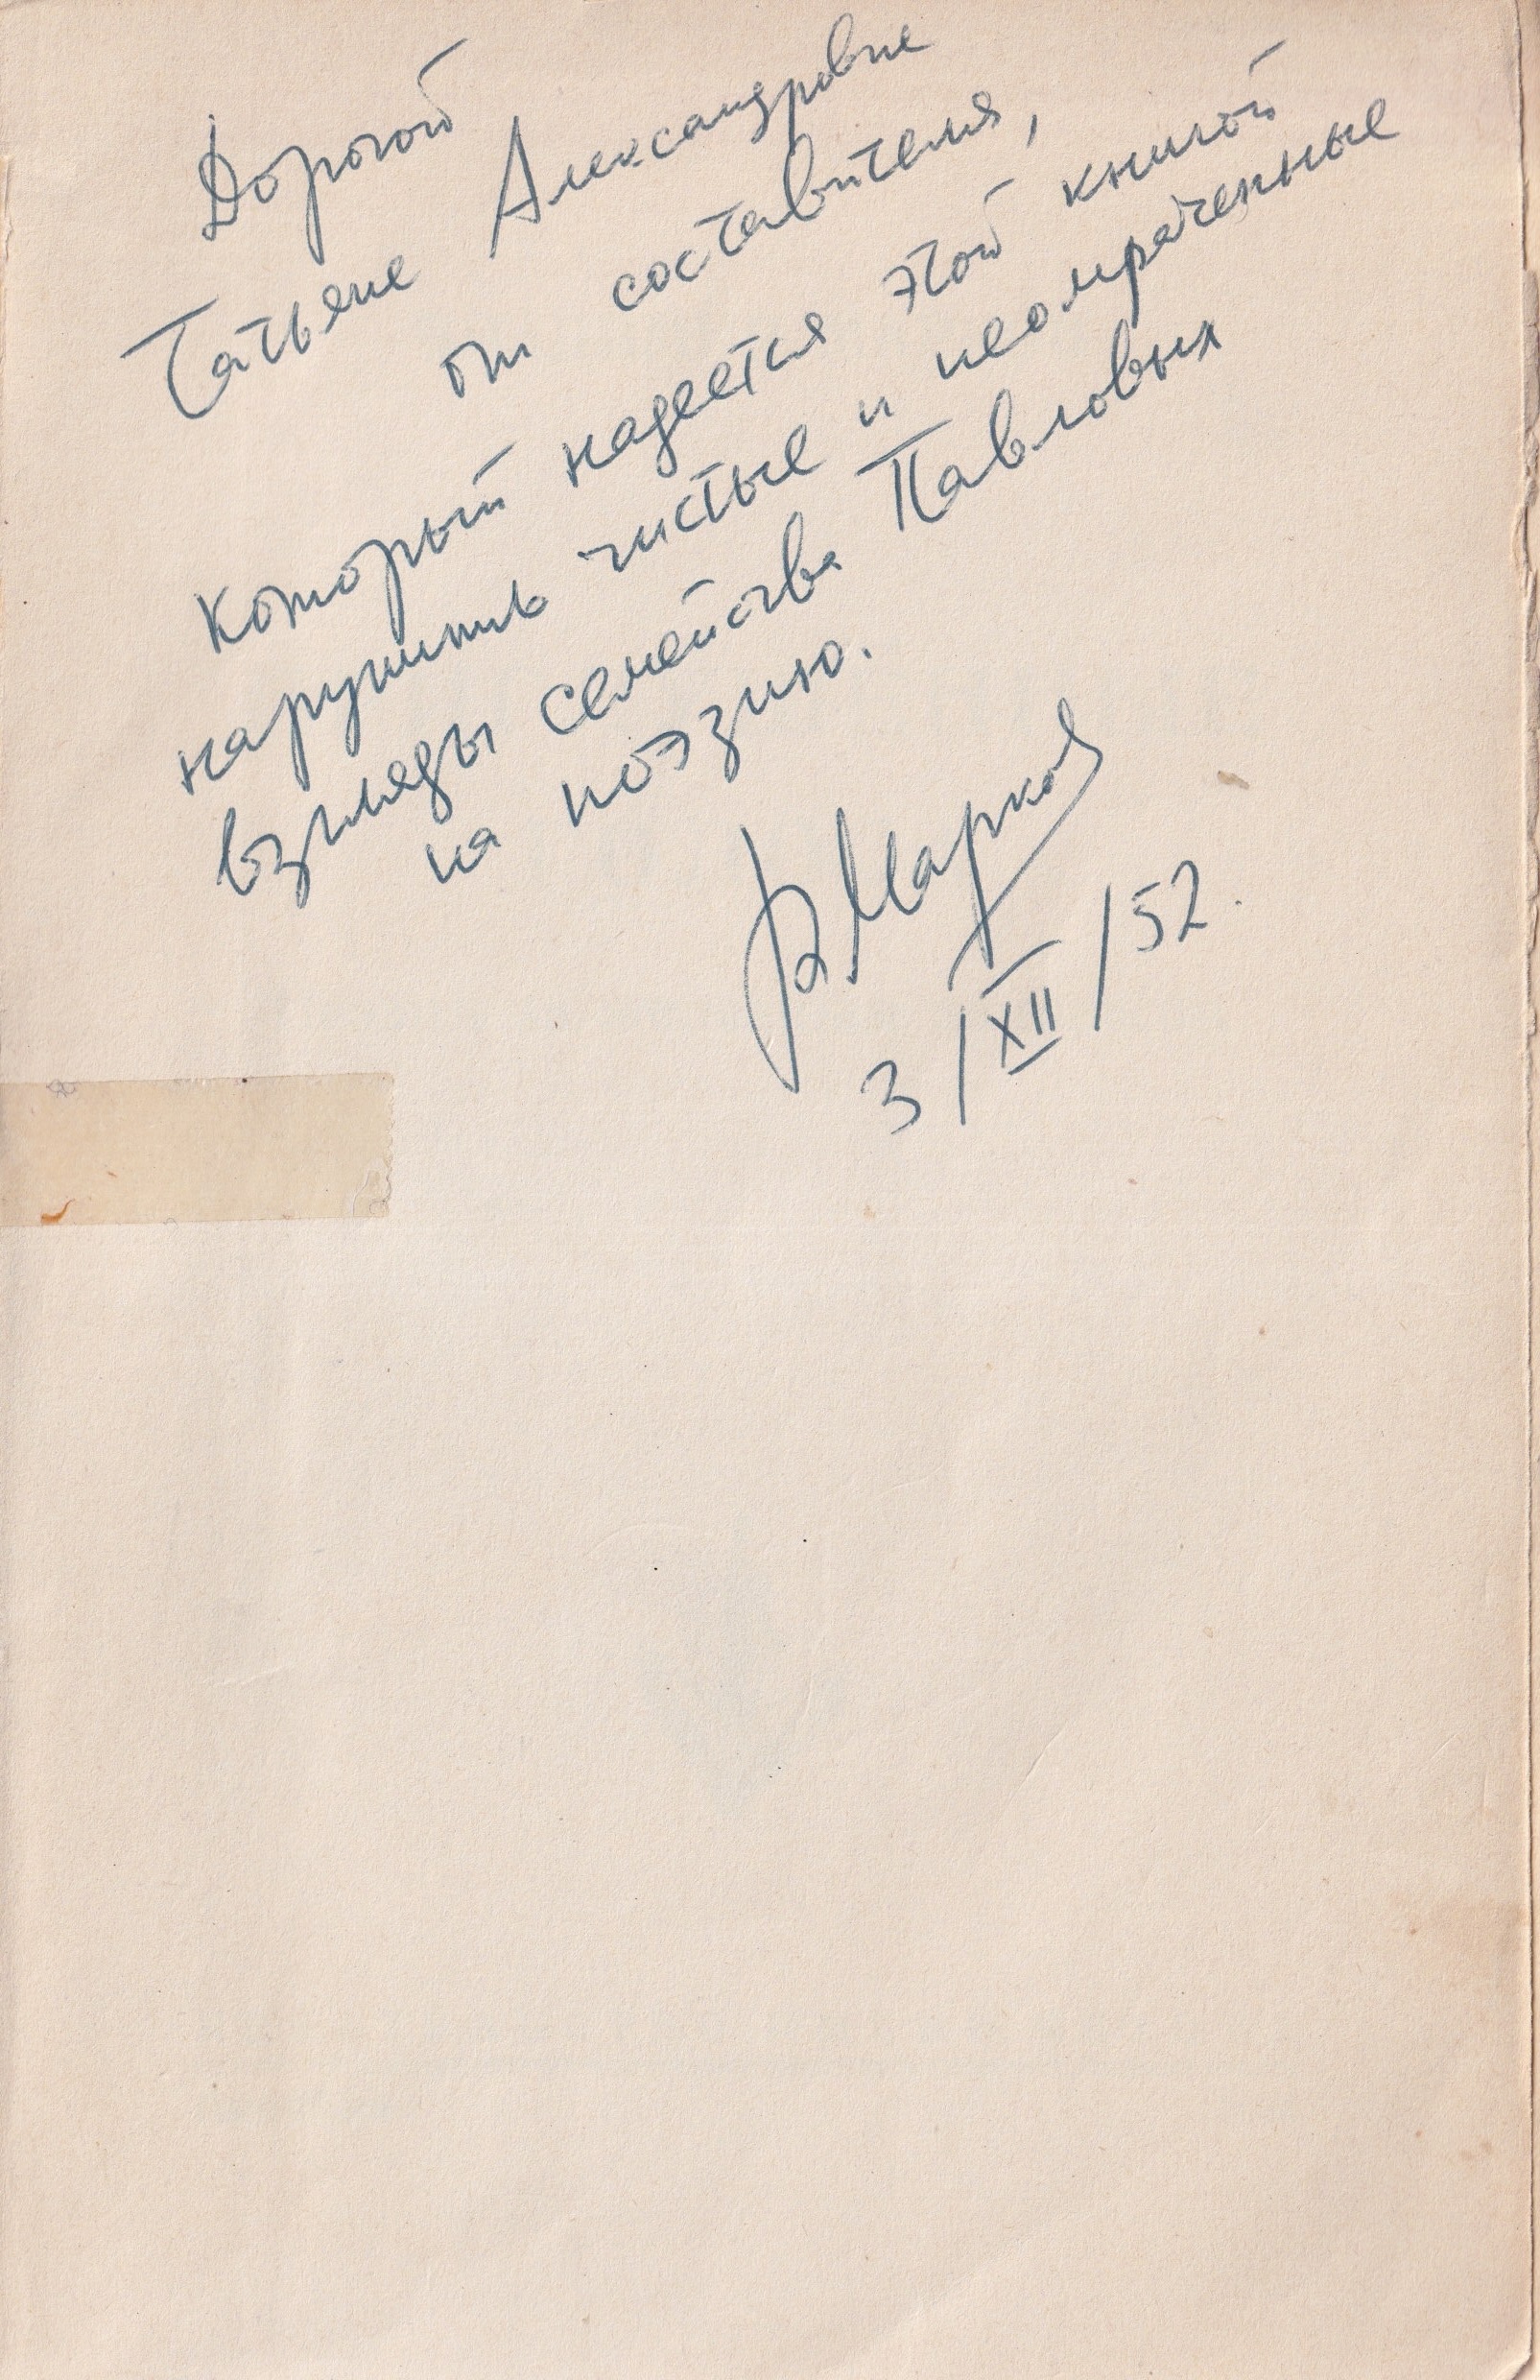 Дорогой
Татьяне Александровне
от составителя,
который надеется этой книгой
нарушить чистые и неомраченные
взгляды семейства Павловых
на поэзию.
В Марков
3/XII/52.